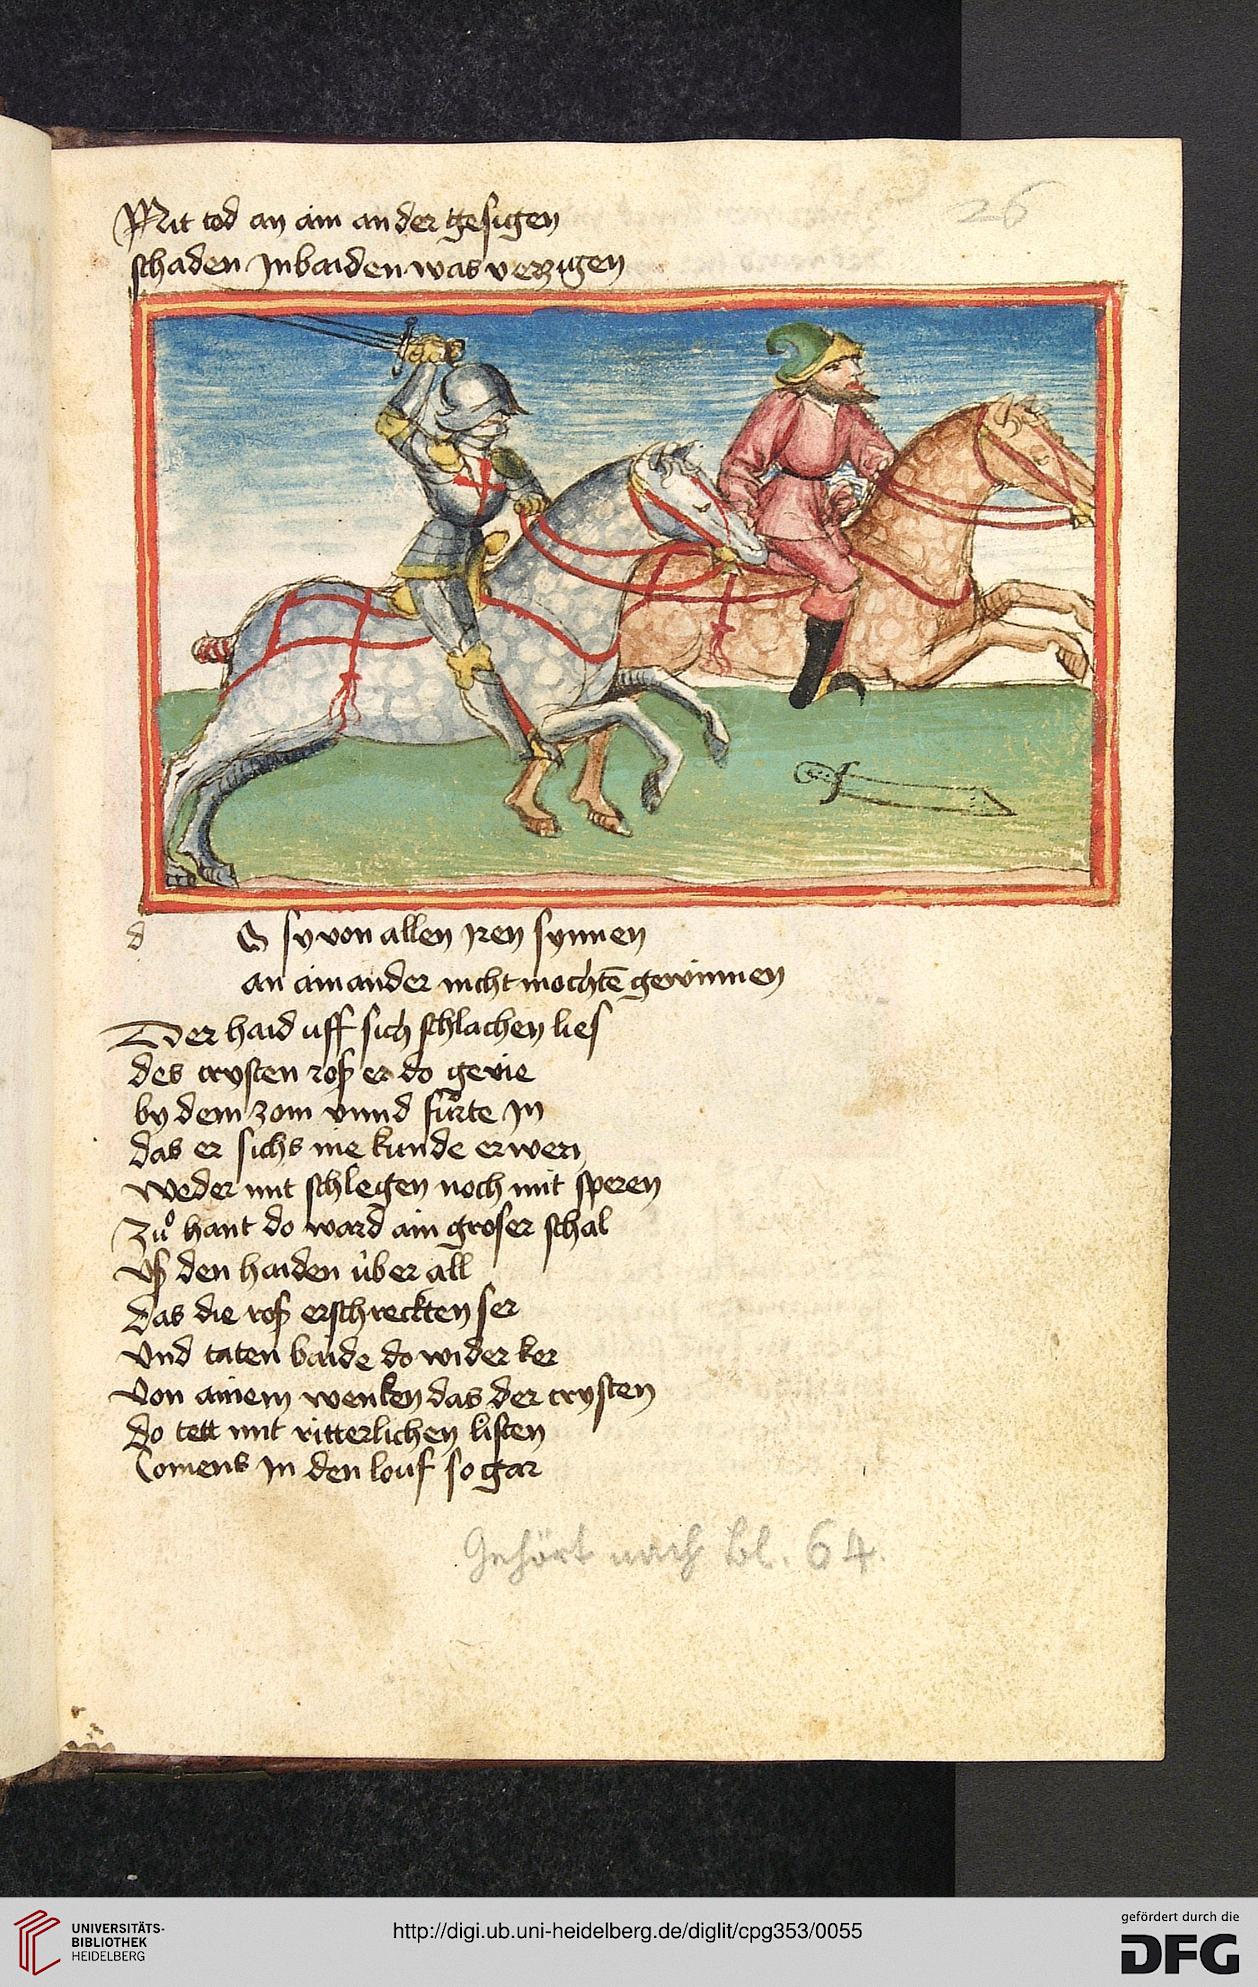 26
Mit tod an ain an der gesigen
schaden Jn baiden was verzigen
d
O sy von allen Jren synnen
an ain ander nicht mochtē gewinnen
Der haid uff sich schlachen lies
des crysten roß er do gevie
by dem zom vnnd fůrte Jn
das er sichs nie kunde erwern
weder mit schlegen noch mit speren
Zů hant do ward ain groser schal
Vß den haiden úber all
Das die roß erschreckten ser
Vnd taten baide do wider ker
Von ainem wenken das der crysten
do tett mit ritterlichen listen
Comens Jn den louf so gar
Gehört nach bl. 64.
UNIVERSITÄTS-
BIBLIOTHEK
HEIDELBERG
http://digi.ub.uni-heidelberg.de/diglit/cpg353/0055
gefördert durch die
DFG